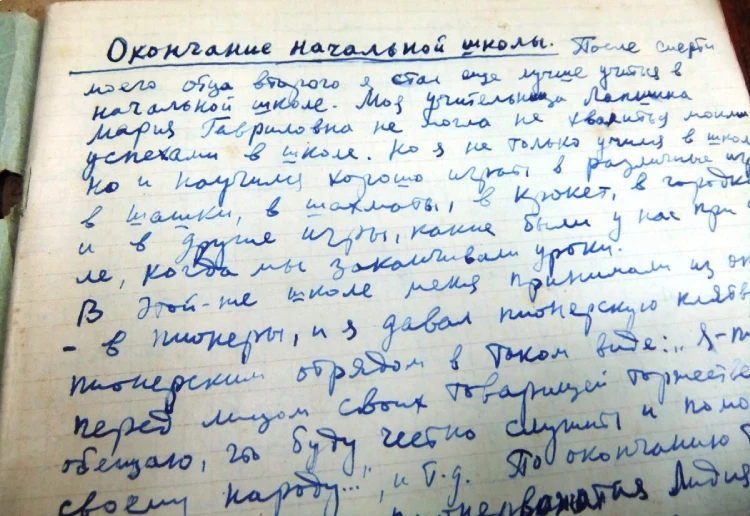 Окончание начальной школы. После смерти
моего отца второго я стал еще лучше учиться в
начальной школе. Моя учительница Лапшина
Мария Гавриловна не могла не хвалиться моими
успехами в школе. Но я не только учился в школ
но и научился хорошо играть в различные иг
в шашки, в шахматы, в крокет, в городк
и в другие игры, какие были у нас при
ле, когда мы заканчивали уроки.
В этой-же школе меня принимали из ок
- в пионеры, и я давал пионерскую клятв
пионерским отрядом в таком виде: „Я-пи
перед лицом своих товарищей торжестве
обещаю, что буду честно служить и помо
своему народу...", и т.д. По окончанию
Лидия